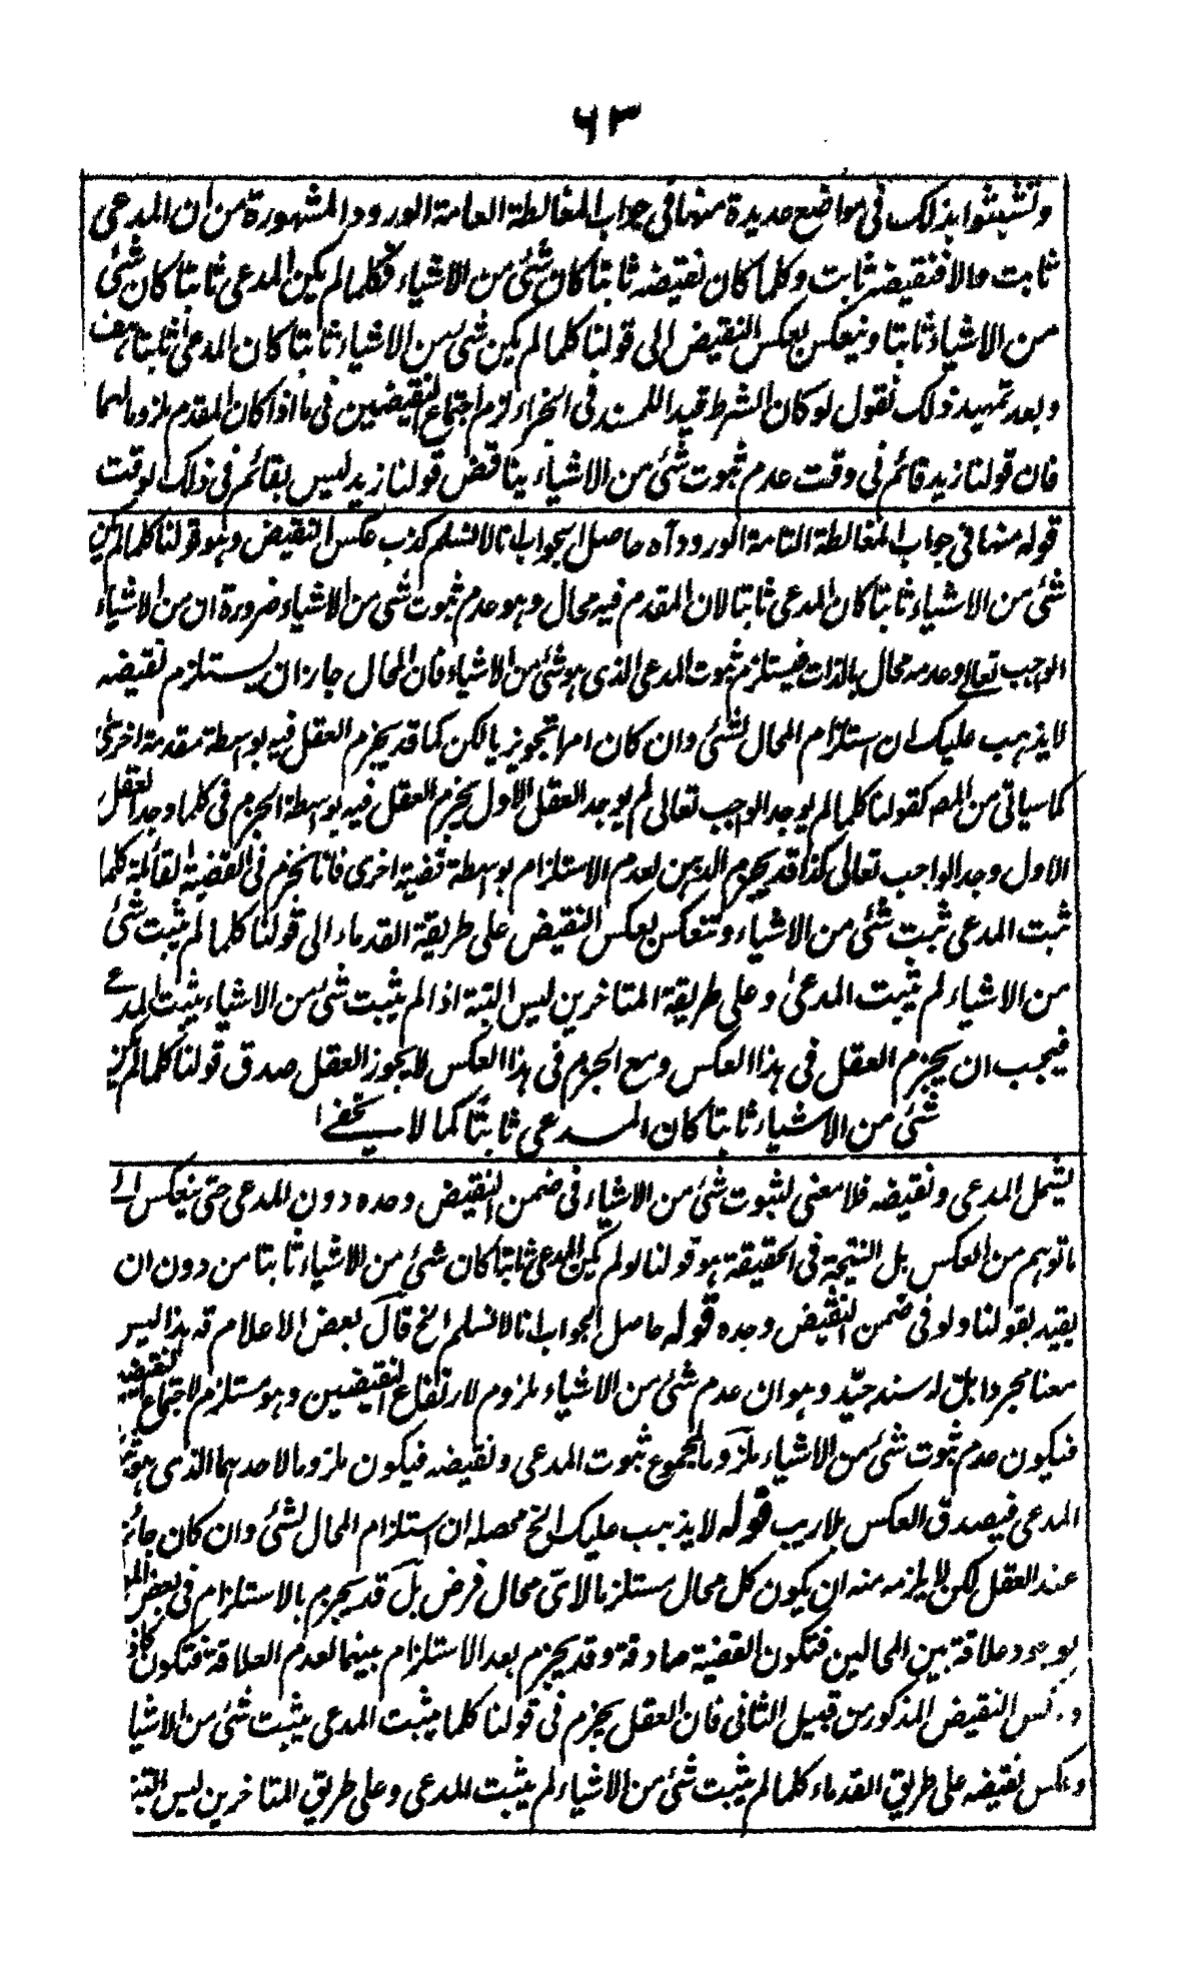 ٦٣
وتشبثوا بذلك فى مواضع عديدة منها فى جواب المغالطة العامة الورود المشهورة من ان المدعى
ثابت والا فنقيضه ثابت وكلما كان نقيضه ثابتا كان شئ من الاشياء فكلما لم يكن المدعى ثابتا كان شئ
من الاشياء ثابتا وينعكس بعكس النقيض الى قولنا كلما لم يكن شئ من الاشياء ثابتا كان المدعى ثابتا هف
وبعد تمهيد ذلك نقول لو كان الشرط قيدا للمسند فى الجزاء لزم اجتماع النقيضين فى ما اذا كان المقدم ملزوما لهما
فان قولنا زيد قائم فى وقت عدم ثبوت شئ من الاشياء يناقض قولنا زيد ليس بقائم فى ذلك الوقت
قوله منها فى جواب المغالطة التامة الورود آه حاصل الجواب انا لا نسلم كذب عكس النقيض وهو قولنا كلما لم يكن
شئ من الاشياء ثابتا كان المدعى ثابتا لان المقدم فيه محال وهو عدم ثبوت شئ من الاشياء ضرورة ان من الاشياء
الواجب تعالى وعدمه محال بالذات فيستلزم ثبوت المدعى الذى هو شئ من الاشياء فان المحال جاز ان يستلزم نقيضه
لا يذهب عليك ان استلزام المحال لشئ وان كان امرا تجويزيا لكن كما قد يجزم العقل فيه بواسطة مقدمة اخرى
كما سياتى من المصـ كقولنا كلما لم يوجد الواجب تعالى لم يوجد العقل الاول يجزم العقل فيه بواسطة الجزم فى كلما وجد العقل
الاول وجد الواجب تعالى كذا قد يجزم الذهن لعدم الاستلزام بواسطة قضية اخرى فانا نجزم فى القضية القائلة كلما
ثبت المدعى ثبت شئ من الاشياء وتنعكس بعكس النقيض على طريقة القدماء الى قولنا كلما لم يثبت شئ
من الاشياء لم يثبت المدعى وعلى طريقة المتاخرين ليس البتة اذا لم يثبت شئ من الاشياء يثبت المدعى
فيجب ان يجزم العقل فى هذا العكس ومع الجزم فى هذا العكس لا يجوز العقل صدق قولنا كلما لم يكن
شئ من الاشياء ثابتا كان المدعى ثابتا كما لا يخفى ا
يشمل المدعى ونقيضه فلا معنى لثبوت شئ من الاشياء فى ضمن النقيض وحده دون المدعى حتى ينعكس الى
ما توهم من العكس بل النتيجة فى الحقيقة هو قولنا لو لم يكن المدعى ثابتا كان شئ من الاشياء ثابتا من دون ان
يقيد بقولنا ولو فى ضمن النقيض وحده قوله حاصل الجواب انا لا نسلم الخ قال بعض الاعلام قه هذا ليس
معنا مجردا بل له سند جيّد وهو ان عدم شئ من الاشياء ملزوم لارتفاع النقيضين وهو مستلزم لاجتماع النقيضين
فيكون عدم ثبوت شئ من الاشياء ملزوما لمجموع ثبوت المدعى ونقيضه فيكون ملزوما لاحدهما الذى هو ثبوت
المدعى فيصدق العكس بلا ريب قوله لا يذهب عليك الخ محصله ان استلزام المحال لشئ وان كان جائز
عند العقل لكن لا يلزمه منه ان يكون كل محال مستلزما لاىّ محال فرض بل قد يجزم بالاستلزام فى بعض
بوجود علاقة بين المحالين فتكون القضية صادقة وقد يجزم بعد الاستلزام بينهما لعدم العلاقة فتكون كاذ
وعكس النقيض المذكور من قبيل الثانى فان العقل يجزم فى قولنا كلما يثبت المدعى يثبت شئ من الاشيا
وعكس نقيضه على طريق القدماء كلما لم يثبت شئ من الاشياء لم يثبت المدعى وعلى طريق المتاخرين ليس البتة